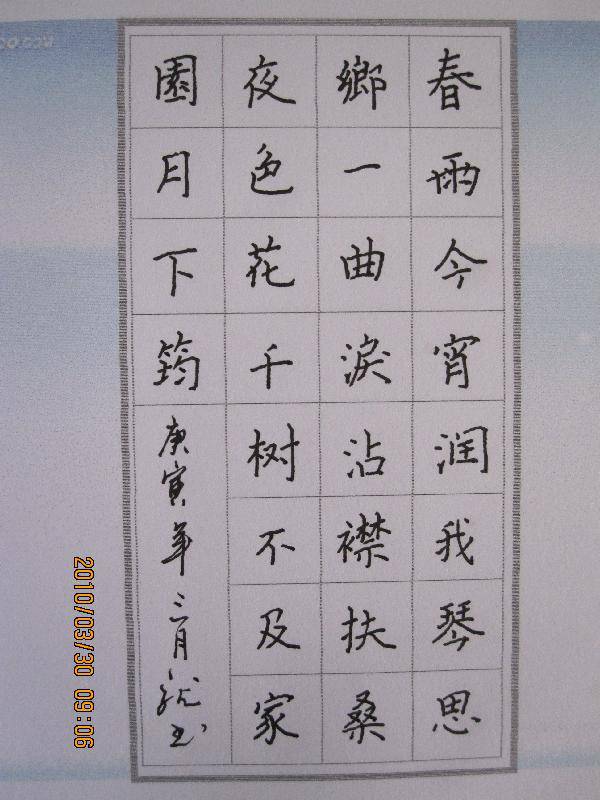 春雨今宵润我琴思
鄉一曲淚沾襟扶桑
夜色花千树不及家
園月下筠
庚寅年三月
2010/03/30 09:06